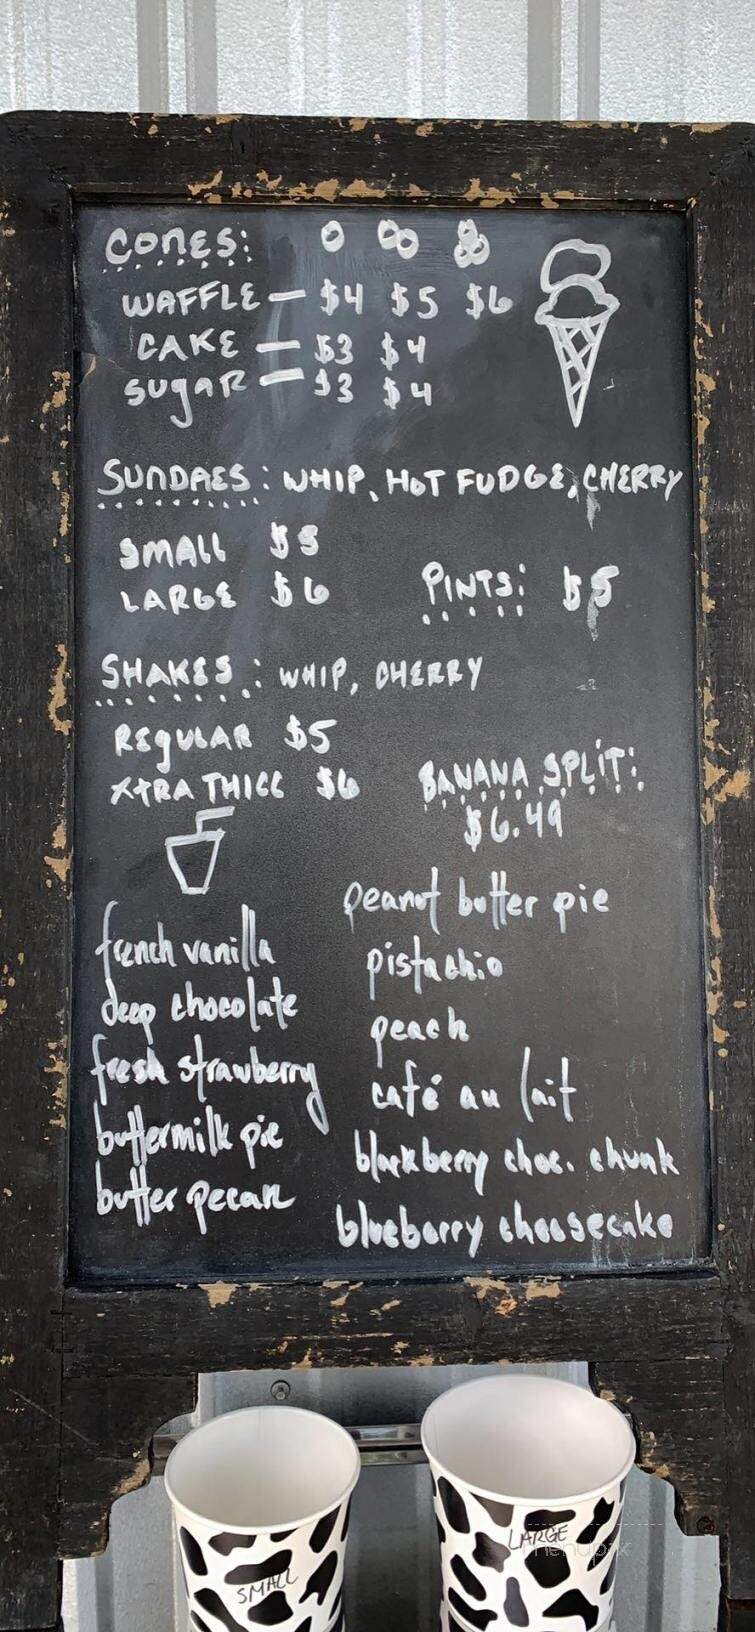 CONES:
WAFFLE — $4 $5 $6
CAKE — $3 $4
SUGAR — $3 $4
SUNDAES: WHIP, HOT FUDGE, CHERRY
SMALL $5
LARGE $6
PINTS: $5
SHAKES: WHIP, CHERRY
REGULAR $5
XTRA THICC $6
BANANA SPLIT:
$6.49
french vanilla
deep chocolate
fresh strawberry
buttermilk pie
butter pecan
peanut butter pie
pistachio
peach
café au lait
blackberry choc. chunk
blueberry cheesecake
SMALL
LARGE
menupix